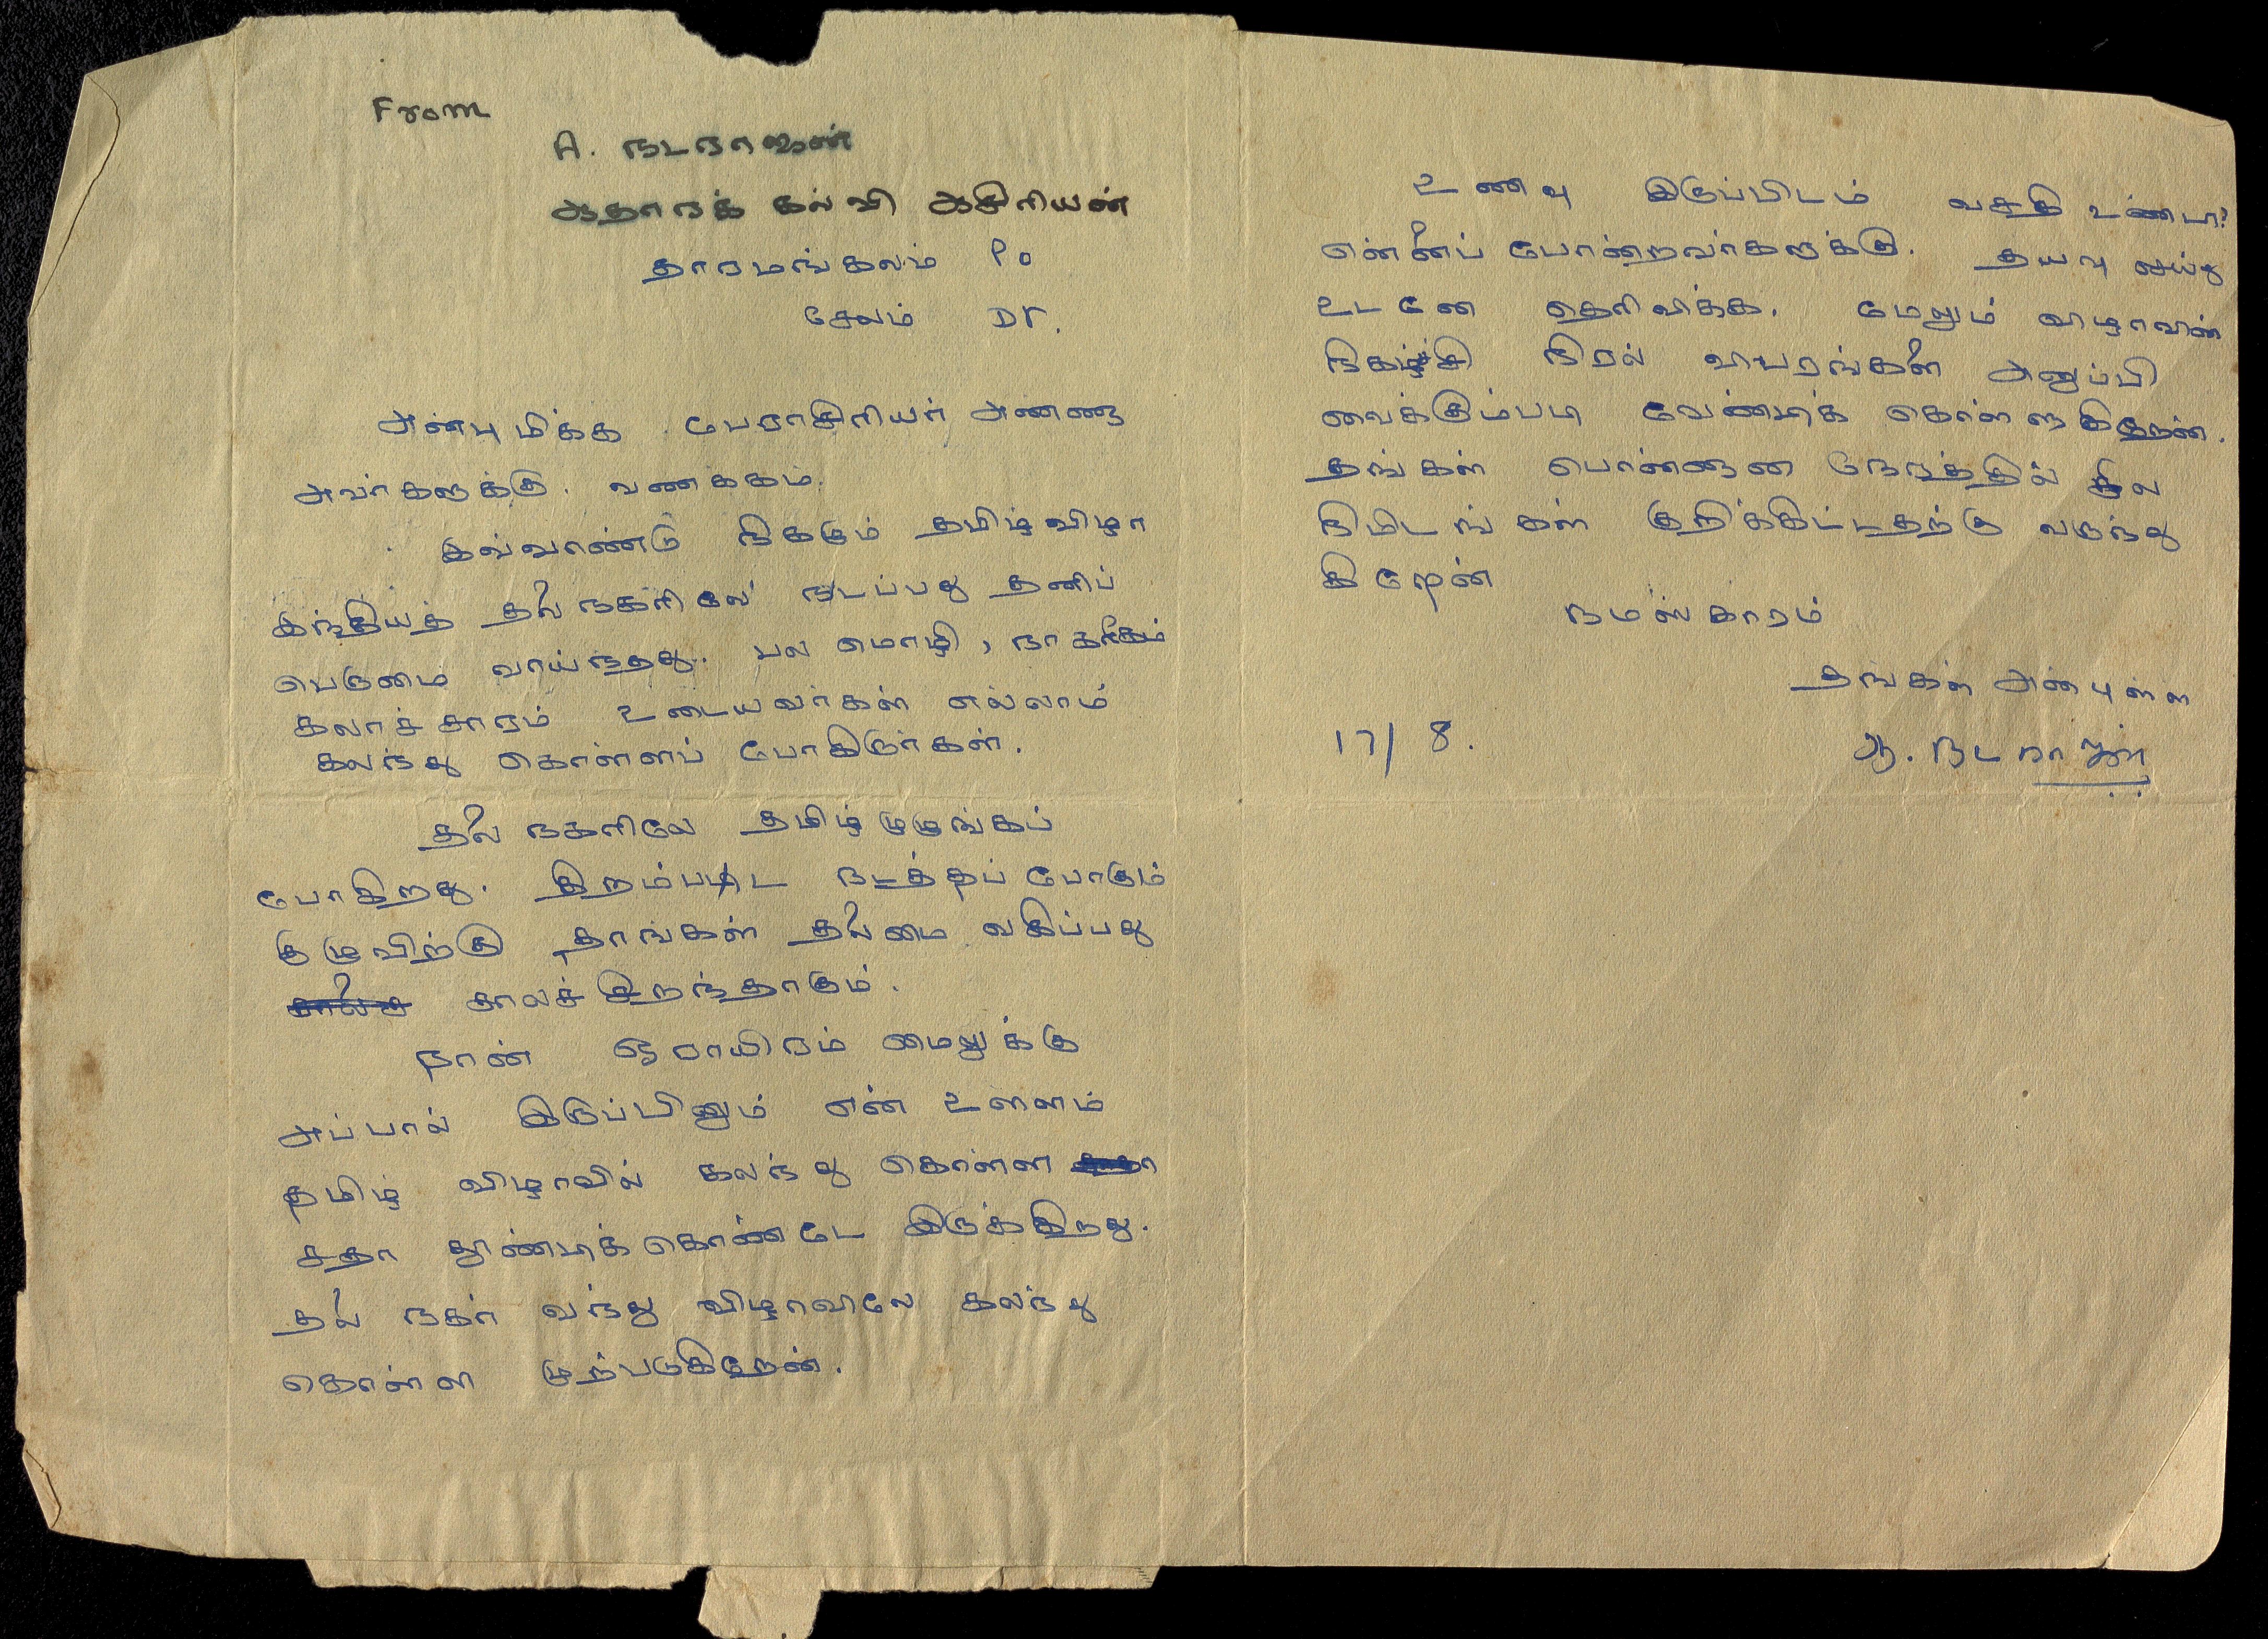 From
A. நடராஜன்
ஆதாரக் கல்வி ஆசிரியன்
தாரமங்கலம் Po
சேலம் Dr.
அன்பு மிக்க பேராசிரியர் அண்ணா
அவர்களுக்கு. வணக்கம்.
இவ்வாண்டு நிகழும் தமிழ் விழா
இந்தியத் தலைநகரிலே நடப்பது தனிப்
பெருமை வாய்ந்தது. பல மொழி, நாகரிகம்
கலாச்சாரம் உடையவர்கள் எல்லாம்
கலந்து கொள்ளப் போகிறார்கள்.
தலை நகரிலே தமிழ் முழங்கப்
போகிறது. திறம்பட நடத்தப் போகும்
குழுவிற்கு தாங்கள் தலைமை வகிப்பது
காலச் சிறந்தாகும்.
நான் ஓராயிரம் மைலுக்கு
அப்பால் இருப்பினும் என் உள்ளம்
தமிழ் விழாவில் கலந்து கொள்ள
சதா தூண்டிக்கொண்டே இருக்கிறது.
தலை நகர் வந்து விழாவிலே கலந்து
கொள்ள முற்படுகிறேன்.
உணவு இருப்பிடம் வசதி உண்டா?
என்னைப் போன்றவர்களுக்கு. தயவு செய்து
உடனே தெரிவிக்க. மேலும் விழாவின்
நிகழ்ச்சி நிரல் விபரங்கள் அனுப்பி
வைக்கும்படி வேண்டிக் கொள்ளுகிறேன்.
தங்கள் பொன்னான நேரத்தில் சில
நிமிடங்கள் குறிக்கிட்டதற்கு வருந்து
கிறேன்
நமஸ்காரம்
தங்கள் அன்புள்ள
17/8.
ஆ. நடராஜன்